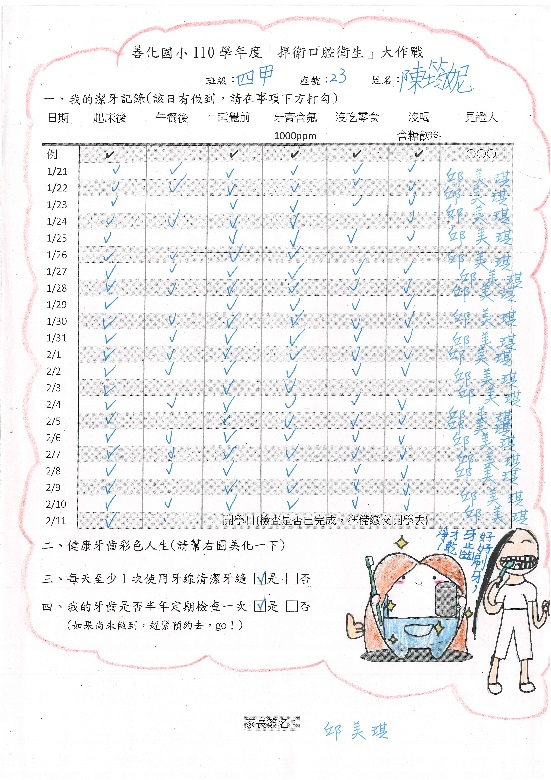 善化國小 110 學年度「捍衛口腔衛生」大作戰
班級：四甲 座號：23 姓名：陳筠妮
一、我的潔牙記錄(該日有做到，請在事項下方打勾)
日期 起床後 午餐後 睡覺前 牙膏含氟 沒吃零食 沒喝 見證人
1000ppm 含糖飲料
例 ✓ ✓ ✓ ✓ ✓ ✓ ○○○
1/21 ✓ ✓ ✓ ✓ ✓ ✓ 邱美琪
1/22 ✓ ✓ ✓ ✓ ✓ ✓ 邱美琪
1/23 ✓ ✓ ✓ ✓ ✓ 邱美琪
1/24 ✓ ✓ ✓ ✓ ✓ ✓ 邱美琪
1/25 ✓ ✓ ✓ ✓ ✓ 邱美琪
1/26 ✓ ✓ ✓ ✓ ✓ 邱美琪
1/27 ✓ ✓ ✓ ✓ ✓ 邱美琪
1/28 ✓ ✓ ✓ ✓ ✓ 邱美琪
1/29 ✓ ✓ ✓ ✓ 邱美琪
1/30 ✓ ✓ ✓ ✓ ✓ 邱美琪
1/31 ✓ ✓ ✓ ✓ ✓ 邱美琪
2/1 ✓ ✓ ✓ ✓ ✓ 邱美琪
2/2 ✓ ✓ ✓ ✓ ✓ 邱美琪
2/3 ✓ ✓ ✓ 邱美琪
2/4 ✓ ✓ ✓ ✓ ✓ 邱美琪
2/5 ✓ ✓ ✓ ✓ ✓ 邱美琪
2/6 ✓ ✓ ✓ ✓ ✓ 邱美琪
2/7 ✓ ✓ ✓ ✓ ✓ 邱美琪
2/8 ✓ ✓ ✓ ✓ ✓ 邱美琪
2/9 ✓ ✓ ✓ ✓ 邱美琪
2/10 ✓ ✓ ✓ ✓ ✓ 邱美琪
2/11 開學日(檢查是否已完成，
二、健康牙齒彩色人生(請幫右圖美化一下)
三、每天至少1次使用牙線清潔牙縫 ☑是 □否
四、我的牙齒是否半年定期檢查一次 ☑是 □否
(如果尚未做到，趕緊預約去，go！)
好好刷牙
牙齒
才乾
淨!
家長簽名：邱美琪